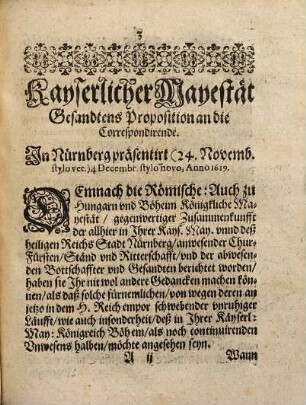 3
Kayserlicher Mayestät
Gesandtens Proposition an die
Correspondirende.
In Nürnberg präsentirt (24. Novemb.
stylo vet.) 4 Decembr. stylo novo, Anno 1619.
DEmnach die Römische: Auch zu
Hungarn vnd Böheim Königkliche Ma-
yestät / gegenwertiger Zusammenkunfft
der allhier in Ihrer Kays. May. vnnd deß
heiligen Reichs Stadt Nürnberg / anwesender Chur-
Fürsten / Ständ vnd Ritterschafft / vnd der abwesen-
den Bottschafften vnd Gesandten berichtet worden /
haben sie Jhr nit wol andere Gedancken machen kön-
nen / als daß solche fürnemlichen / von wegen deren an-
jetzo in dem H. Reich empor schwebender vnrühiger
Läufft / wie auch insonderheit / deß in Jhrer Käyserl:
May: Königreich Böheim / als noch continuirenden
Vnwesens halben / möchte angesehen seyn.
A ij Wann